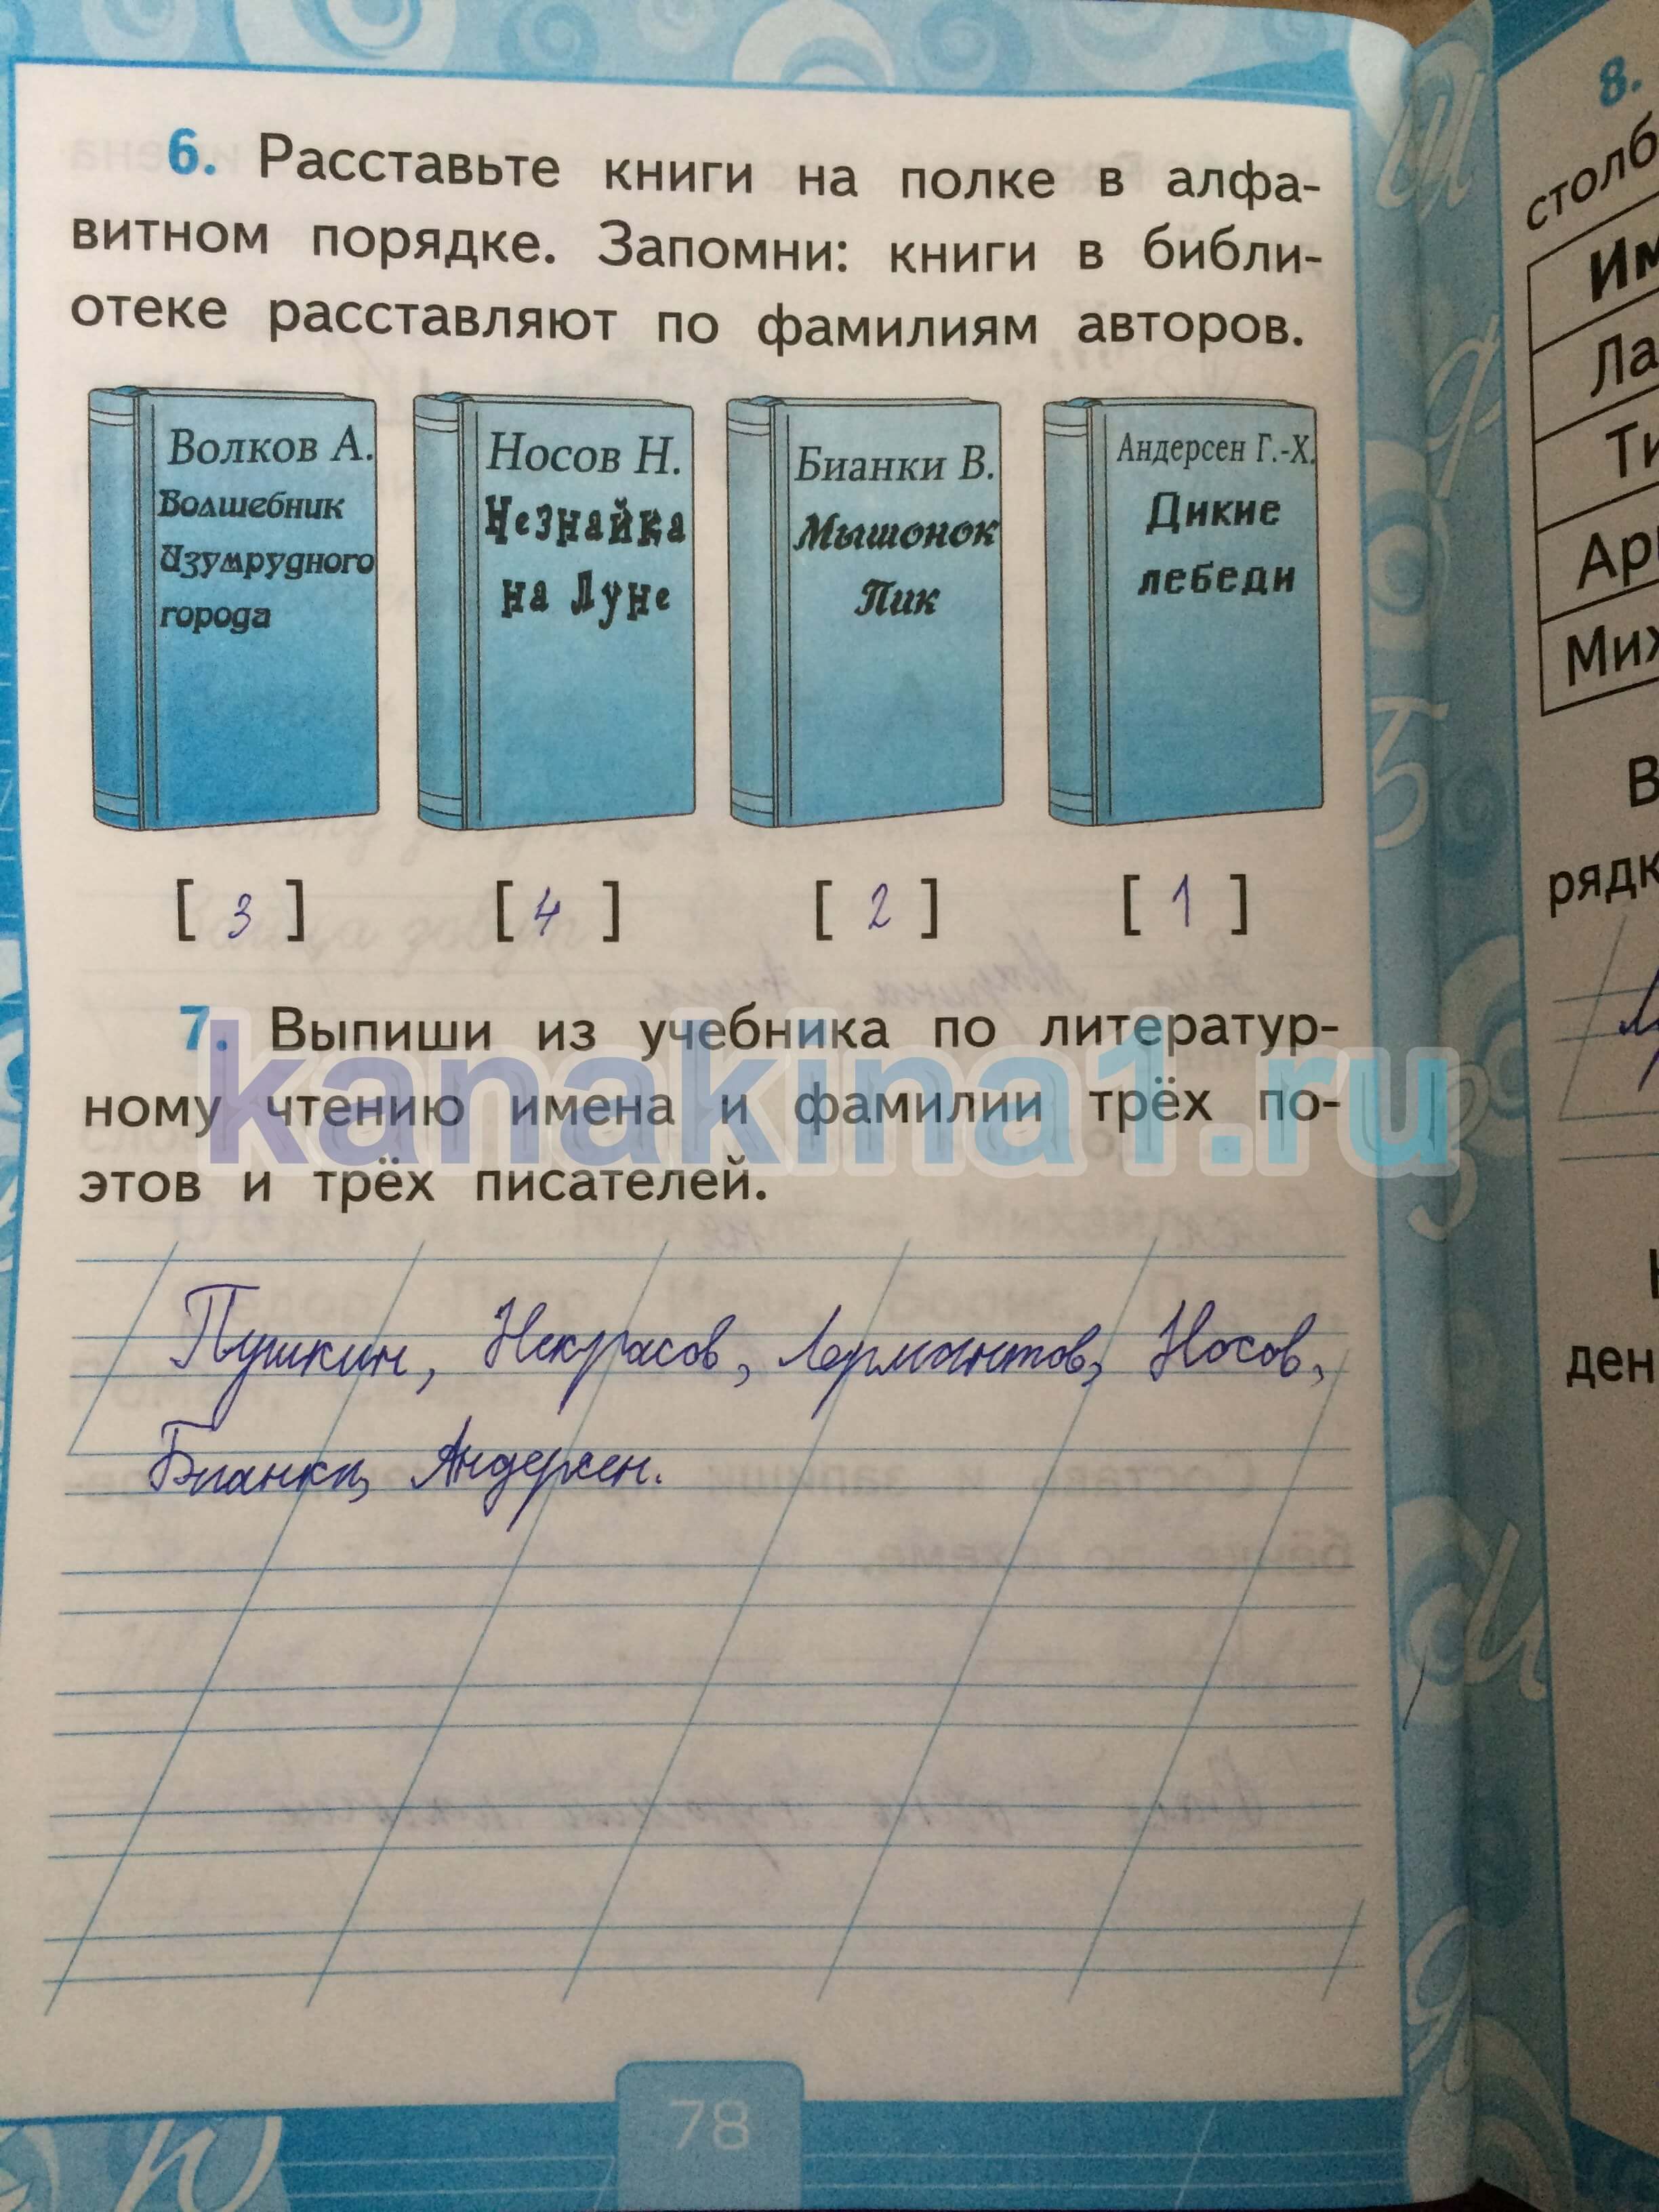 6. Расставьте книги на полке в алфа-
витном порядке. Запомни: книги в библи-
отеке расставляют по фамилиям авторов.
Волков А.
Волшебник
Изумрудного
города
Носов Н.
Незнайка
на Луне
Бианки В.
Мышонок
Пик
Андерсен Г.-Х.
Дикие
лебеди
[ 3 ] [ 4 ] [ 2 ] [ 1 ]
7. Выпиши из учебника по литератур-
ному чтению имена и фамилии трёх по-
этов и трёх писателей.
kanakina1.ru
Пушкин, Некрасов, Лермонтов, Носов,
Бианки, Андерсен.
78
8.
столб
Им
Ла
Ти
Ар
Мих
В
рядк
ден